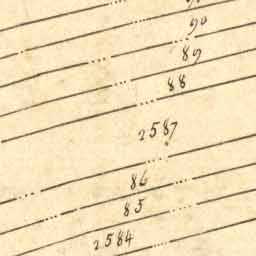 90
89
88
2587
86
85
2584